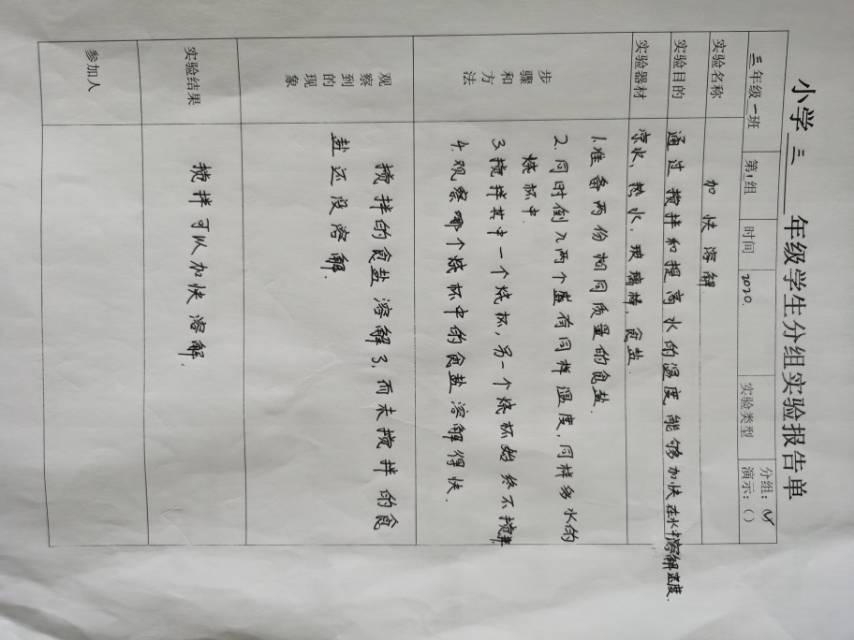 小学三年级学生分组实验报告单
三年级一班 第1组 时间 2020. 实验类型 分组：(√) 演示：()
实验名称 加快溶解
实验目的 通过搅拌和提高水的温度能够加快在水中溶解速度.
实验器材 凉水、热水、玻璃棒、食盐
步骤和方法
1.准备两份相同质量的食盐.
2.同时倒入两个盛有同样温度,同样多水的
烧杯中.
3.搅拌其中一个烧杯,另一个烧杯始终不搅拌
4.观察哪个烧杯中的食盐溶解得快.
观察到的现象
搅拌的食盐溶解了,而未搅拌的食
盐还没溶解.
实验结果 搅拌可以加快溶解.
参加人